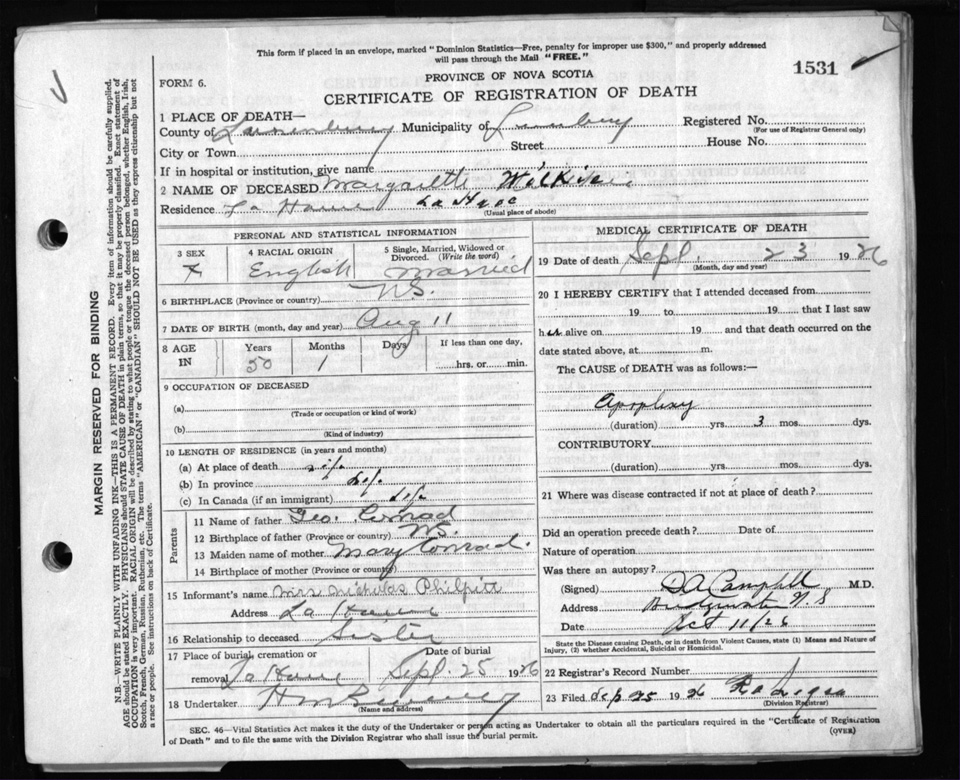 This form if placed in an envelope, marked "Dominion Statistics—Free, penalty for improper use $300," and properly addressed
will pass through the Mail "FREE."
1531
PROVINCE OF NOVA SCOTIA
FORM 6.
CERTIFICATE OF REGISTRATION OF DEATH
1 PLACE OF DEATH—
County of Lunenburg Municipality of Lunenburg Registered No.
(For use of Registrar General only)
City or Town Street House No.
If in hospital or institution, give name
2 NAME OF DECEASED Margareth Wilkie
Residence La Have La Have
(Usual place of abode)
PERSONAL AND STATISTICAL INFORMATION
3 SEX 4 RACIAL ORIGIN 5 Single, Married, Widowed or
Divorced. (Write the word)
English Married
6 BIRTHPLACE (Province or country) N.S.
7 DATE OF BIRTH (month, day and year) Aug 11
8 AGE IN Years Months Days If less than one day,
50 1 hrs. or min.
9 OCCUPATION OF DECEASED
(a)
(Trade or occupation or kind of work)
(b)
(Kind of industry)
10 LENGTH OF RESIDENCE (in years and months)
(a) At place of death life
(b) In province life
(c) In Canada (if an immigrant) life
Parents
11 Name of father Geo. Conrad
12 Birthplace of father (Province or country) N.S.
13 Maiden name of mother Mary Conrad.
14 Birthplace of mother (Province or county)
15 Informant's name Mrs Nicholas Philpitt
Address La Have
16 Relationship to deceased Sister
17 Place of burial, cremation or Date of burial
removal La Have Sept. 25 1926
18 Undertaker
(Name and address)
MEDICAL CERTIFICATE OF DEATH
19 Date of death Sept. 23 1926
(Month, day and year)
20 I HEREBY CERTIFY that I attended deceased from
19 to 19 that I last saw
her alive on 19 and that death occurred on the
date stated above, at m.
The CAUSE of DEATH was as follows:
Apoplexy
(duration) yrs. 3 mos. dys.
CONTRIBUTORY
(duration) yrs. mos. dys.
21 Where was disease contracted if not at place of death?
Did an operation precede death? Date of
Nature of operation
Was there an autopsy?
(Signed) D A Campbell M.D.
Address Bridgewater N.S
Date Oct 11/26
State the Disease causing Death, or in death from Violent Causes, state (1) Means and Nature of
Injury, (2) whether Accidental, Suicidal or Homicidal.
22 Registrar's Record Number
23 Filed Sep 25 1926
(Division Registrar)
SEC. 46—Vital Statistics Act makes it the duty of the Undertaker or person acting as Undertaker to obtain all the particulars required in the "Certificate of Registration
of Death" and to file the same with the Division Registrar who shall issue the burial permit.
(OVER)
MARGIN RESERVED FOR BINDING
N.B.—WRITE PLAINLY WITH UNFADING INK—THIS IS A PERMANENT RECORD. Every item of information should be carefully supplied.
AGE should be stated EXACTLY. PHYSICIANS should STATE CAUSE OF DEATH in plain terms, so that it may be properly classified. Exact statement of
OCCUPATION is very important. RACIAL ORIGIN will be described by stating to what people or tongue the deceased person belonged, whether English, Irish,
Scotch, French, German, Russian, Ruthenian, etc. The terms "AMERICAN" or "CANADIAN" SHOULD NOT BE USED as they express citizenship but not
a race or people. See instructions on back of Certificate.